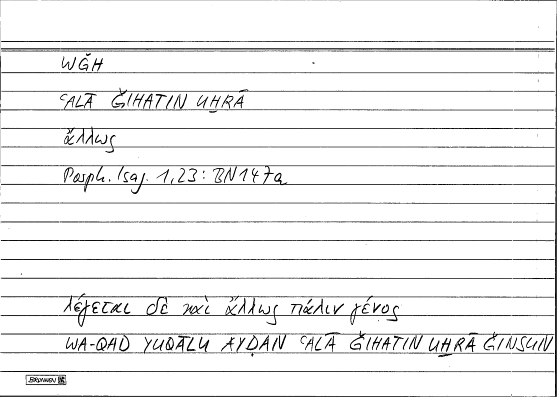 WǦH
ʿALĀ ǦIHATIN UḪRĀ
ἄλλως
Porph. Isag. 1,23: BN147a
λέγεται δὲ καὶ ἄλλως πάλιν γένος
WA-QAD YUQĀLU AYḌAN ʿALĀ ǦIHATIN UḪRĀ ǦINSUN
BRUNNEN